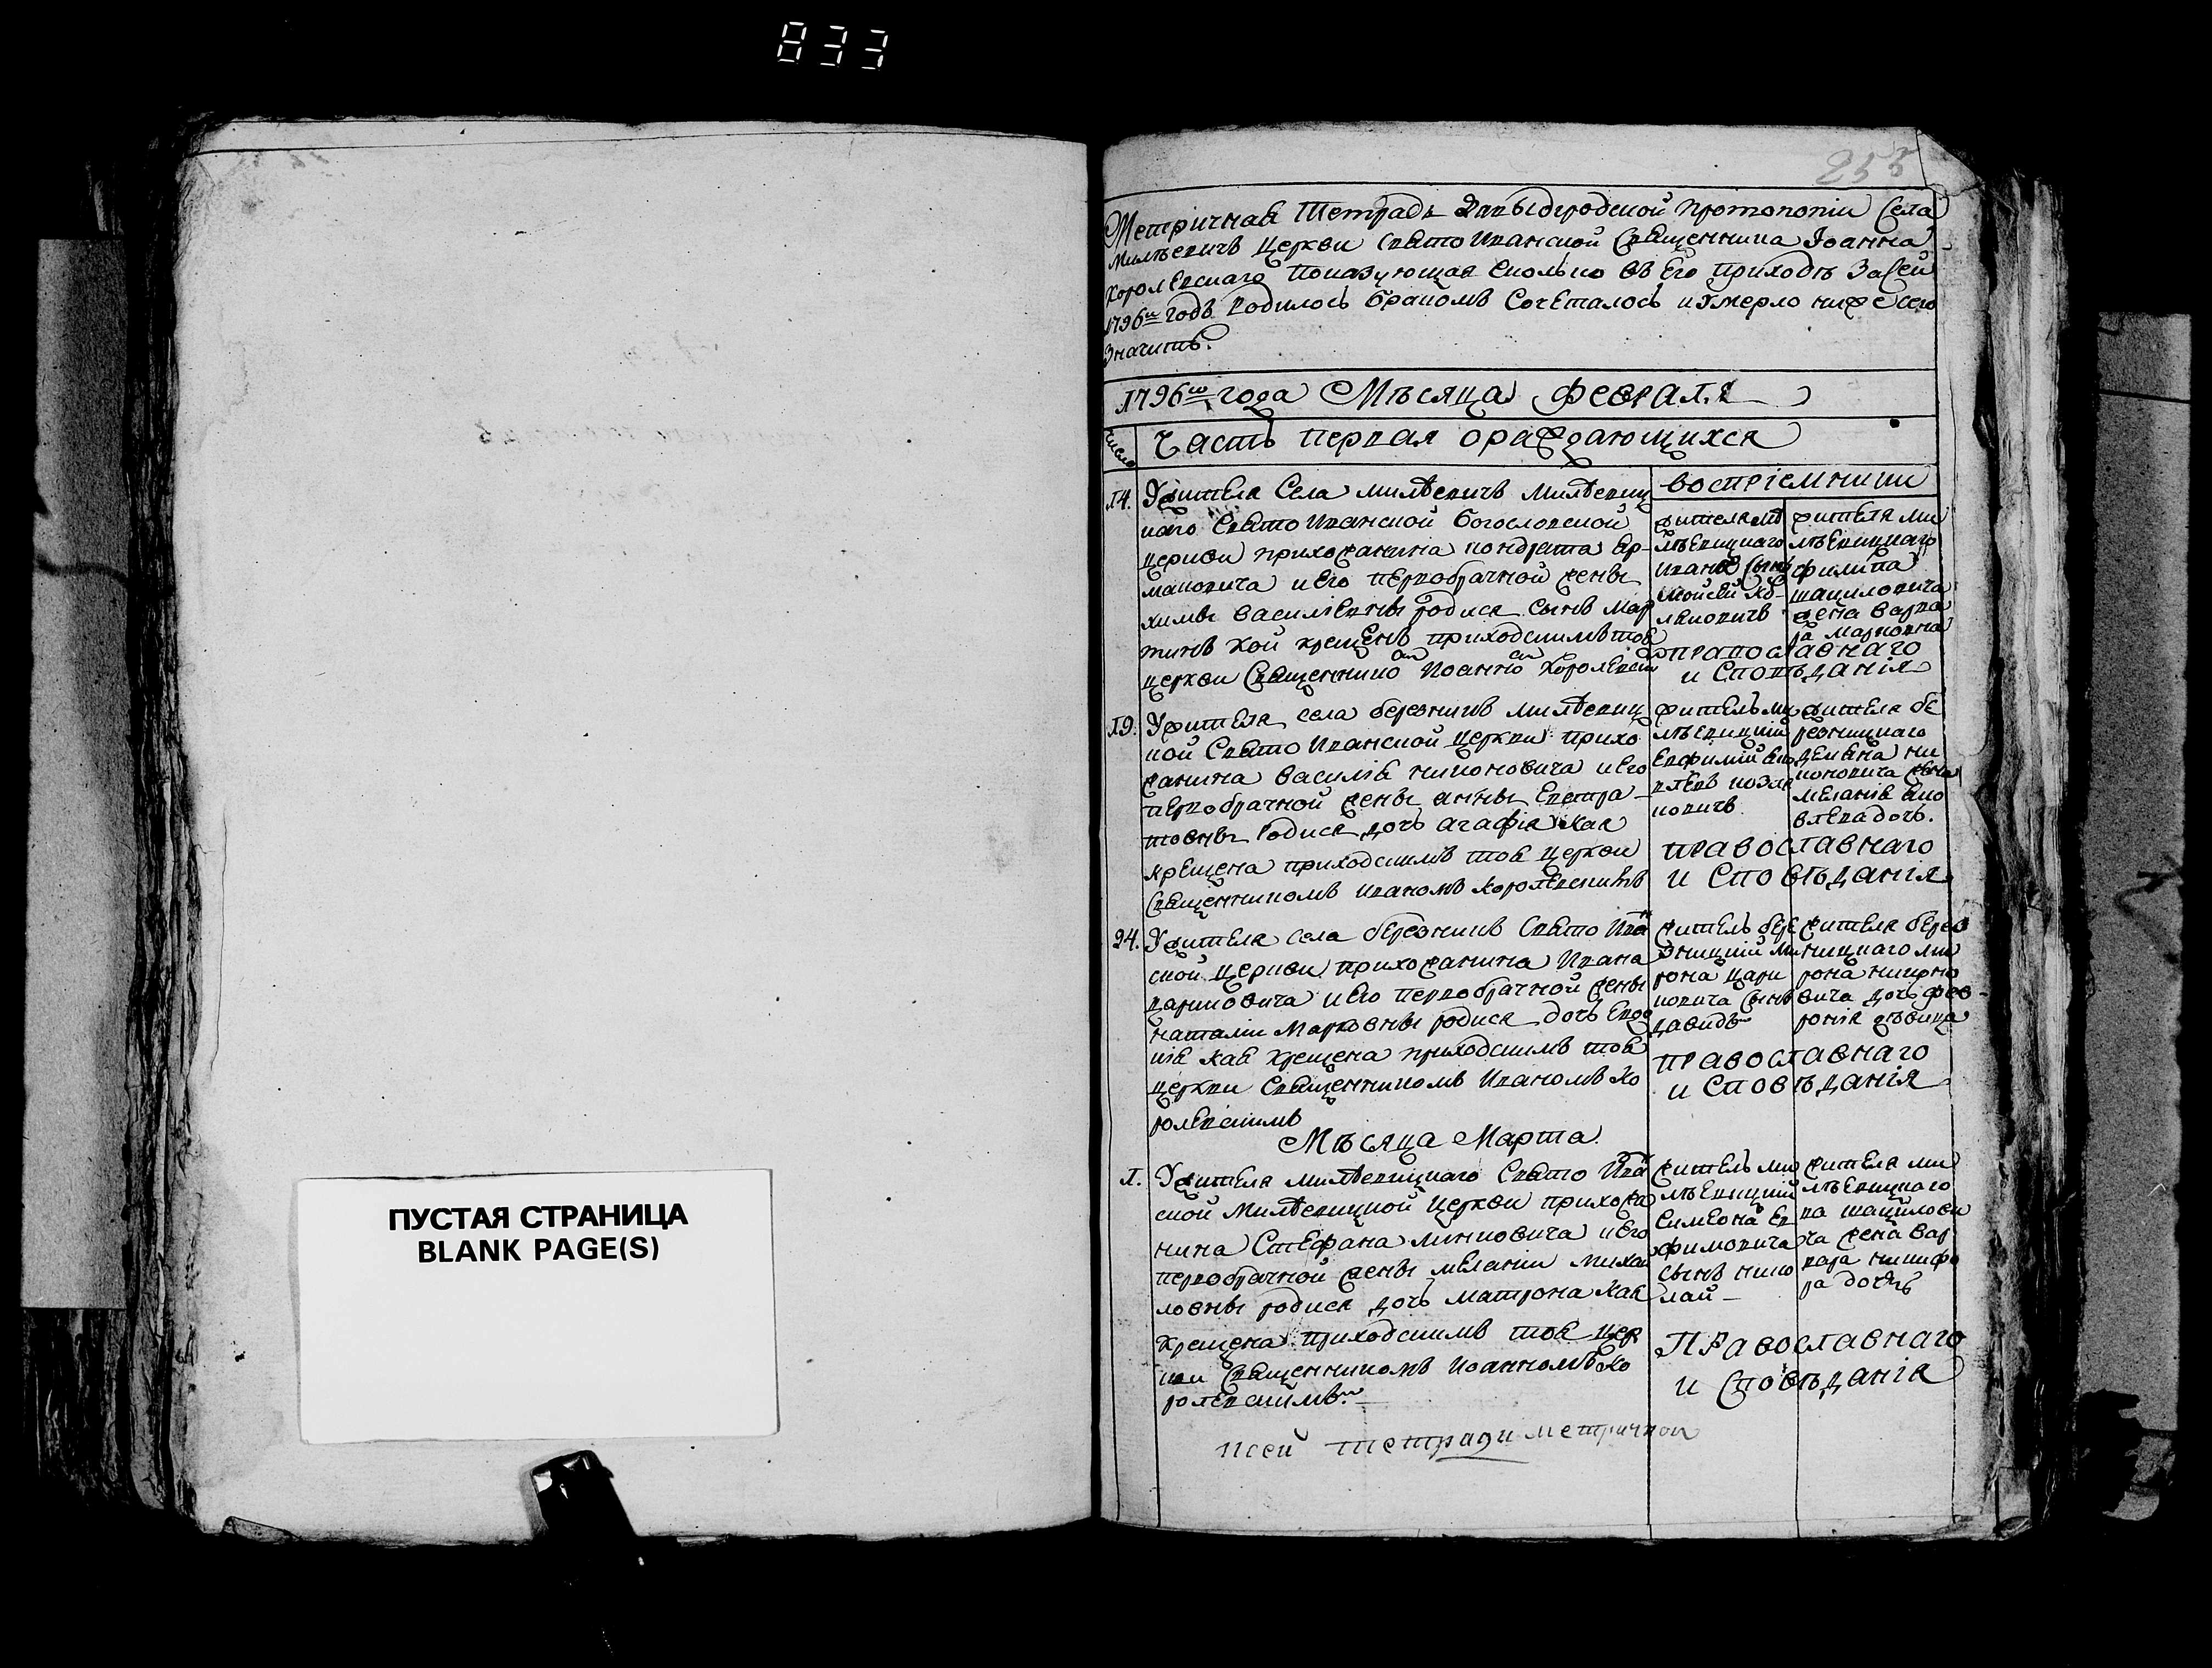 833
ПУСТАЯ СТРАНИЦА
BLANK PAGE(S)
Метричная Тетрадь Давыдгродской протопопіи Села
Милѣевичъ Церкви СвятоИванской Священника Іоанна
Королевскаго Показующая Сколько въ Его приходѣ За Сей
1796й годъ Родилось бракомъ Сочеталось и Умерло ниже сего
Значитъ.
1796го года Мѣсяца Февраля
Число Часть первая ораждающихся
воспріемники
14. Ужителя Села милѣевичъ Милѣвиц
каго СвятоИванской Богословской
церкви прихожанина кондрата Ер-
маковича и Его первобрачной жены
химы Василіевны родися Сынъ Мар
тинъ кой крещенъ приходскимъ тоя
церкви Священнико Иоанно Королевски
жителя ми
лѣвицкаго
Ивана Сынъ
Мойсей
жителя ми
лѣвицкаго
филипа
шациловича
жена варва
ра марковна
православнаго
и Споведанія
19. Ужителя села березнигъ милѣвиц
кой Свято Иванской Церкви прихо
жанина василія никоновича и Его
первобрачной жены анны Еветра-
товны Родися дочь агафія кая
крещена приходскимъ тоя церкви
Священникомъ иваномъ королевскимъ
жителъ ми
лѣвицкий
Евфимий Яко
влевъ козля
ковичъ
жителя бе
резницкаго
демяна ни
коновича жена
меланія Яко
влева дочь.
православнаго
и Сповѣданія
24. Ужителя села березникъ Свято Ива
ской церкви прихожанина Ивана
марковича и Его первобрачной жены
наталіи Марковны родися дочь Евдо
кія кая крещена приходскимъ тоя
церкви Священникомъ Иваномъ Ко
ролевскимъ
жителъ бере
зницкий Ми
рона цари
ковича Сынъ
давидъ
жителя берез
ницкаго ми
рона
вича дочь фев-
ронія дѣвица
православнаго
и Сповѣданія
Мѣсяца Марта
1. Ужителя милѣвицкаго Свято Ива
ской Милѣвицкой Церкви прихожа
нина Стефана минковича и Его
первобрачной жены меланіи михай
ловны родися дочь матрона кая
крещена приходскимъ тоя Цер
кви Священникомъ Иоанномъ Ко
ролевскимъ
жителъ ми
лѣвицкий
Симеона Ев
фимовича
Сынъ нико
лай
жителя ми
лѣвицкаго
ва шацилови
ча жена Вар
вара никифо
ра дочь
Православнаго
и Сповѣданія
Ксей тетради метричной